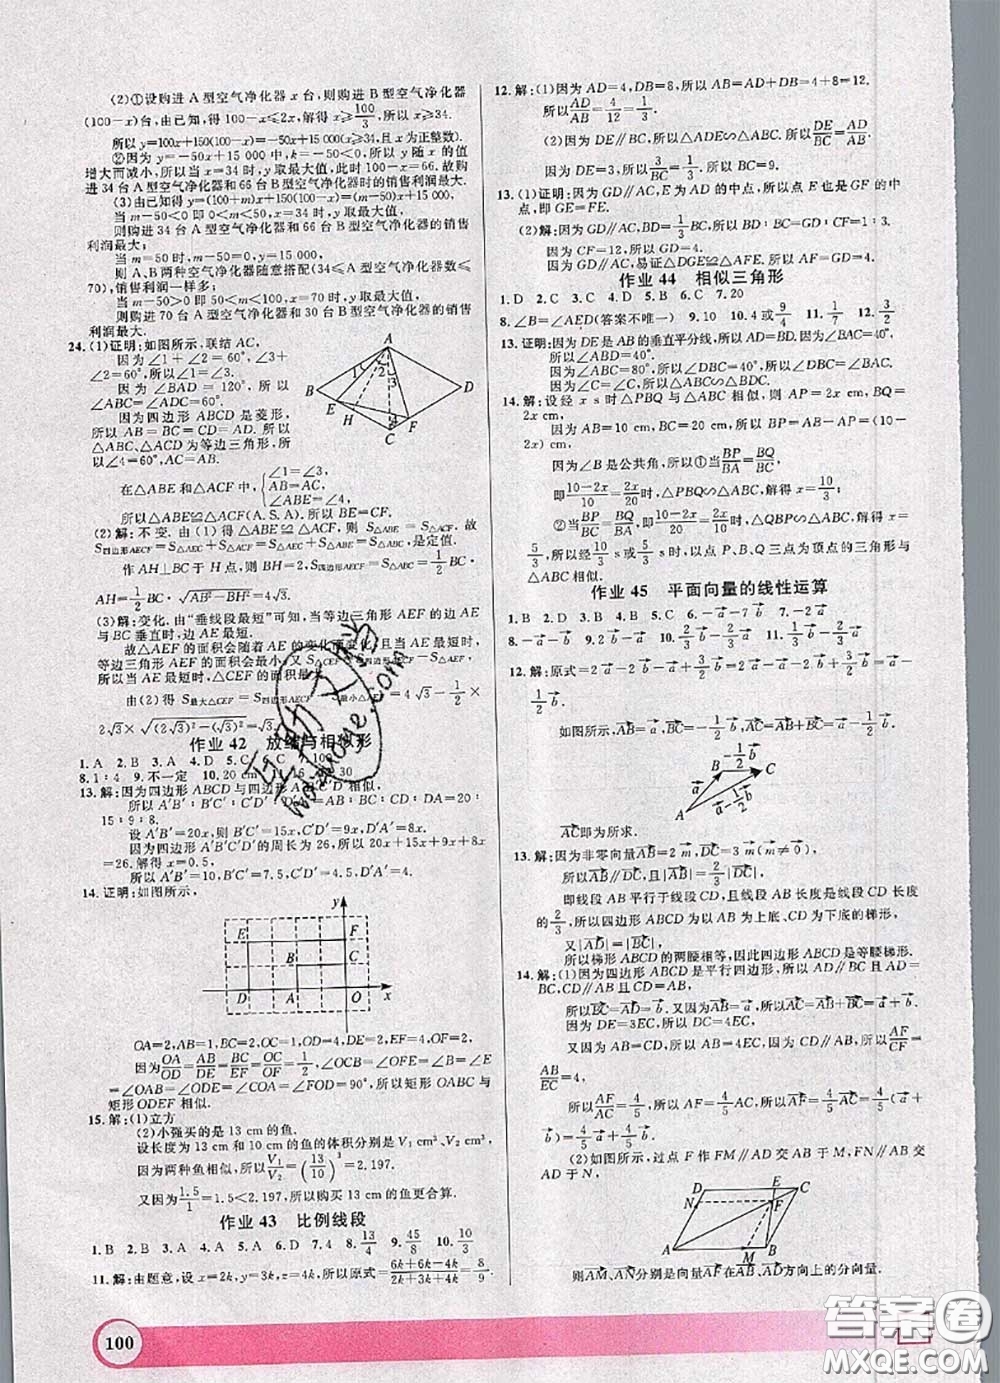 (2)①设购进 A 型空气净化器 x 台,则购进 B 型空气净化器
(100-x)台,由已知,得 100-x≤2x,解得 x≥100/3,所以 x≥34.
所以 y=100x+150(100-x)=-50x+15 000(x≥34,且 x 为正整数).
②因为 y=-50x+15 000 中,k=-50<0,所以 y 随 x 的值
增大而减小,所以当 x=34 时,y 取最大值,此时 100-x=66.故购
进 34 台 A 型空气净化器和 66 台 B 型空气净化器时的销售利润最大.
(3)由已知得 y=(100+m)x+150(100-x)=(m-50)x+15 000.
当 m-50<0 即 0<m<50,x=34 时,y 取最大值,
则购进 34 台 A 型空气净化器和 66 台 B 型空气净化器的销售
利润最大;
当 m=50 时,m-50=0,y=15 000.
则 A、B 两种空气净化器随意搭配(34≤A 型空气净化器数≤
70),销售利润一样多;
当 m-50>0 即 50<m<100,x=70 时,y 取最大值,
则购进 70 台 A 型空气净化器和 30 台 B 型空气净化器的销售
利润最大.
24.(1)证明:如图所示,联结 AC,
因为∠1+∠2=60°,∠3+∠2=
60°,所以∠1=∠3.
因为∠BAD=120°,所以
∠ABC=∠ADC=60°.
因为四边形 ABCD 是菱形,
所以 AB=BC=CD=AD.所以
△ABC、△ACD 为等边三角形,所
以∠4=60°,AC=AB.
A
1
2
3
B
D
E
H
4
F
C
在△ABE 和△ACF 中,{∠1=∠3, AB=AC, ∠ABE=∠4,
所以△ABE≌△ACF(A.S.A).所以 BE=CF.
(2)解:不变.由(1)得△ABE≌△ACF,则 S△ABE=S△ACF.故
S四边形AECF=S△AEC+S△ACF=S△AEC+S△ABE=S△ABC,是定值.
作 AH⊥BC 于 H 点,则 BH=2,S四边形AECF=S△ABC=1/2BC·
AH=1/2BC·√(AB²-BH²)=4√3.
(3)解:变化.由“垂线段最短”可知,当等边三角形 AEF 的边 AE
与 BC 垂直时,边 AE 最短.
故△AEF 的面积会随着 AE 的变化而变化,且当 AE 最短时,
等边三角形 AEF 的面积会最小,又 S△CEF=S四边形AECF-S△AEF,
所以当 AE 最短时,△CEF 的面积最大.
由(2)得 S最大△CEF=S四边形AECF-S最小△AEF=4√3-1/2×
2√3×√((2√3)²-(√3)²)=√3.
作业 42 放缩与相似形
1.A 2.B 3.A 4.D 5.C 6.C 7.100
8.1∶4 9.不一定 10.20 cm 11.16 12.20 30
13.解:因为四边形 ABCD 与四边形 A′B′C′D′相似,
所以 A′B′∶B′C′∶C′D′∶D′A′=AB∶BC∶CD∶DA=20∶
15∶9∶8.
设 A′B′=20x,则 B′C′=15x,C′D′=9x,D′A′=8x.
因为四边形 A′B′C′D′的周长为 26,所以 20x+15x+9x+8x
=26.解得 x=0.5,
所以 A′B′=10,B′C′=7.5,C′D′=4.5,A′D′=4.
14.证明:如图所示,
y
E
F
B
C
D
A
O
x
OA=2,AB=1,BC=2,OC=1,OD=4,DE=2,EF=4,OF=2.
因为OA/OD=AB/DE=BC/EF=OC/OF=1/2,∠BCO=∠OFE=∠B=∠E
=∠OAB=∠ODE=∠COA=∠FOD=90°,所以矩形 OABC 与
矩形 ODEF 相似.
15.解:(1)立方
(2)小强买的是 13 cm 的鱼.
设长度为 13 cm 和 10 cm 的鱼的体积分别是 V₁ cm³、V₂ cm³.
因为两种鱼相似,所以V₁/V₂=(13/10)³=2.197.
又因为1.5/1=1.5<2.197,所以购买 13 cm 的鱼更合算.
作业 43 比例线段
1.B 2.B 3.A 4.A 5.A 6.D 7.4 8.13/4 9.45/8 10.10/3
11.解:由题意,设 x=2k,y=3k,z=4k,所以原式=(6k+6k-4k)/(2k+3k+4k)=8/9.
12.解:(1)因为 AD=4,DB=8,所以 AB=AD+DB=4+8=12.
所以AD/AB=4/12=1/3.
(2)因为 DE∥BC,所以△ADE∽△ABC.所以DE/BC=AD/AB.
因为 DE=3,所以3/BC=1/3,所以 BC=9.
13.(1)证明:因为 GD∥AC,E 为 AD 的中点,所以点 E 也是 GF 的中
点,即 GE=FE.
(2)解:因为 GD∥AC,BD=1/3BC,所以 GD∶CF=1∶3.
因为 CF=12,所以 GD=4,易证△DGE≌△AFE.所以 AF=4.
作业 44 相似三角形
1.D 2.C 3.C 4.D 5.B 6.C 7.20
8.∠B=∠AED(答案不唯一) 9.10 10.4 或9/4 11.1/7 12.3/2
13.证明:因为 DE 是 AB 的垂直平分线,所以 AD=BD.因为∠BAC=40°,
所以∠ABD=40°.
因为∠ABC=80°,所以∠DBC=40°,所以∠DBC=∠BAC.
因为∠C=∠C,所以△ABC∽△BDC.
14.解:设经 x s 时△PBQ 与△ABC 相似,则 AP=2x cm,BQ=
2x cm,
因为 AB=10 cm,BC=20 cm,所以 BP=AB-AP=(10-
2x) cm,
因为∠B 是公共角,所以①当BP/BA=BQ/BC,
即(10-2x)/10=2x/20时,△PBQ∽△ABC,解得 x=10/3;
②当BP/BC=BQ/BA,即(10-2x)/20=2x/10时,△QBP∽△ABC,解得 x=
5/3,所以经10/3 s 或5/3 s 时,以点 P、B、Q 三点为顶点的三角形与
△ABC 相似.
作业 45 平面向量的线性运算
1.B 2.D 3.B 4.B 5.C 6.-a-7b 7.-2a
8.-a-b 9.2b-a 10.2/3a-2/3b 11.1/3a-2/3b
12.解:原式=2a-a-b+3/2b=2a-a-b+3/2b=
a+1/2b.
如图所示,
-1/2b
B
C
a
a-1/2b
A
AC即为所求.
13.解:因为非零向量AB=2m,DC=3m(m≠0),
所以AB∥DC,且|AB|=2/3|DC|,
即线段 AB 平行于线段 CD,且线段 AB 长度是线段 CD 长度
的2/3,所以四边形 ABCD 为以 AB 为上底、CD 为下底的梯形,
又|AD|=|BC|,
所以梯形 ABCD 的两腰相等,因此四边形 ABCD 是等腰梯形.
14.解:(1)因为四边形 ABCD 是平行四边形,所以 AD∥BC 且 AD=
BC,CD∥AB 且 CD=AB,
所以BC=AD=b.又因为AC=AB+BC,所以AC=a+b.
因为 DE=3EC,所以 DC=4EC,
又因为 AB=CD,所以 AB=4EC.因为 CD∥AB,所以AF/CF=
AB/EC=4,
所以AF/AC=4/5,所以AF=4/5AC,所以AF=4/5AC=4/5(a+
b)=4/5a+4/5b.
(2)如图所示,过点 F 作 FM∥AD 交 AB 于 M,FN∥AB 交 AD
于 N,
D
E
C
N
F
A
M
B
则AM、AN分别是向量AF在AB、AD方向上的分向量.
100
答案圈
MXQE.COM